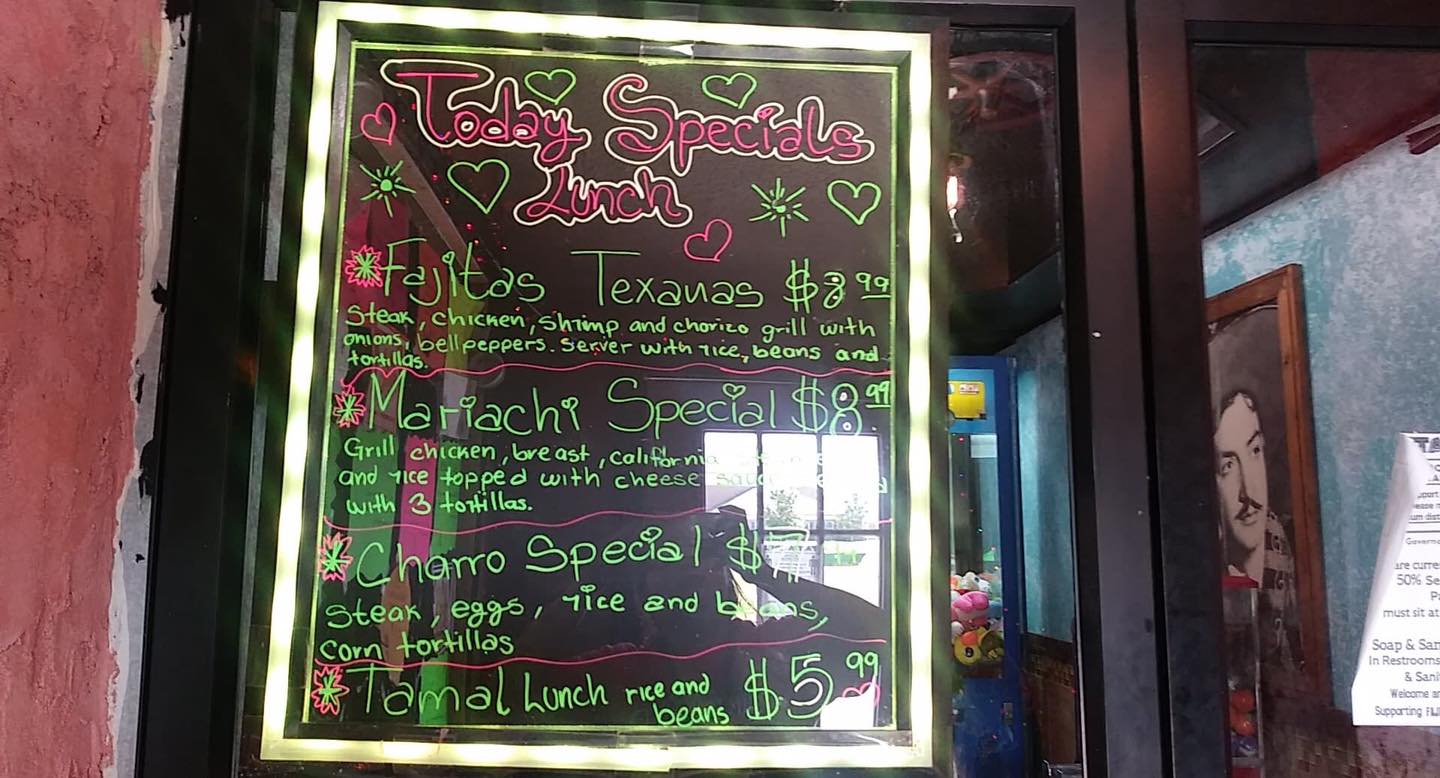 Today Specials
Lunch
Fajitas Texanas $8 99
Steak, chicken, shrimp and chorizo grill with
onions, bellpeppers. Server with rice, beans and
tortillas.
Mariachi Special $8 99
Grill chicken, breast, california
and rice topped with cheese
with 3 tortillas.
Charro Special $7
Steak, eggs, rice and beans,
corn tortillas
Tamal Lunch rice and $5 99
beans
50%
must sit at
Soap &
In Restrooms
&
Welcome
Supporting